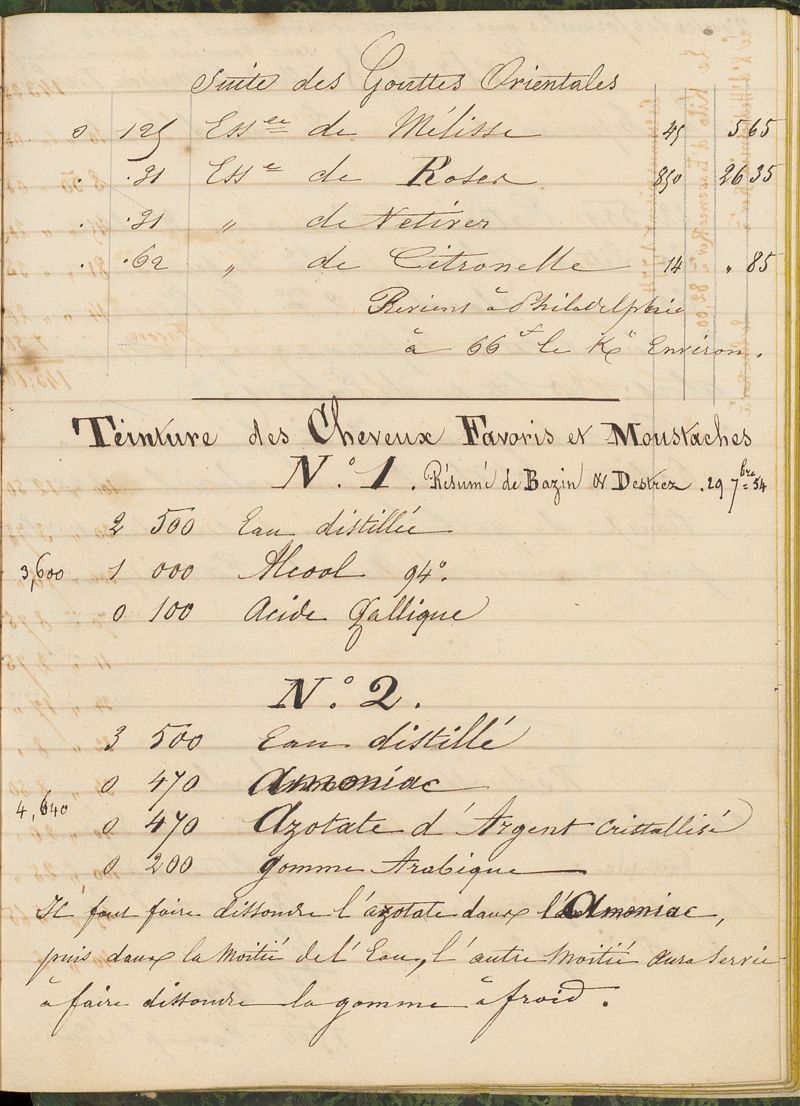 Suite des Gouttes Orientales
0 125 Ess.ce de Mélisse 45 5 65
. .31 Ess.e de Roses 850 26 35
. .31 „ de Vetiver
. .62 „ de Citronelle 14 „ 85
Reviens à Philadelphie
à 66f le Ko Environ.
Teinture des Cheveux Favoris et Moustaches
N.o 1. Résumé de Bazin & Destrez. 29 7bre 54
2 500 Eau distillée
3,600 1 000 Alcool 94o.
0 100 Acide Gallique
N.o 2.
3 500 Eau distillé
0 470 Amoniac
4,640
0 470 Azotate d'Argent Cristallisé
0 200 gomme Arabique
Il faut faire dissoudre l'azotate dans l'Amoniac,
puis dans la Moitié de l'Eau, l'autre Moitié aura Servie
à faire dissoudre la gomme à froid.